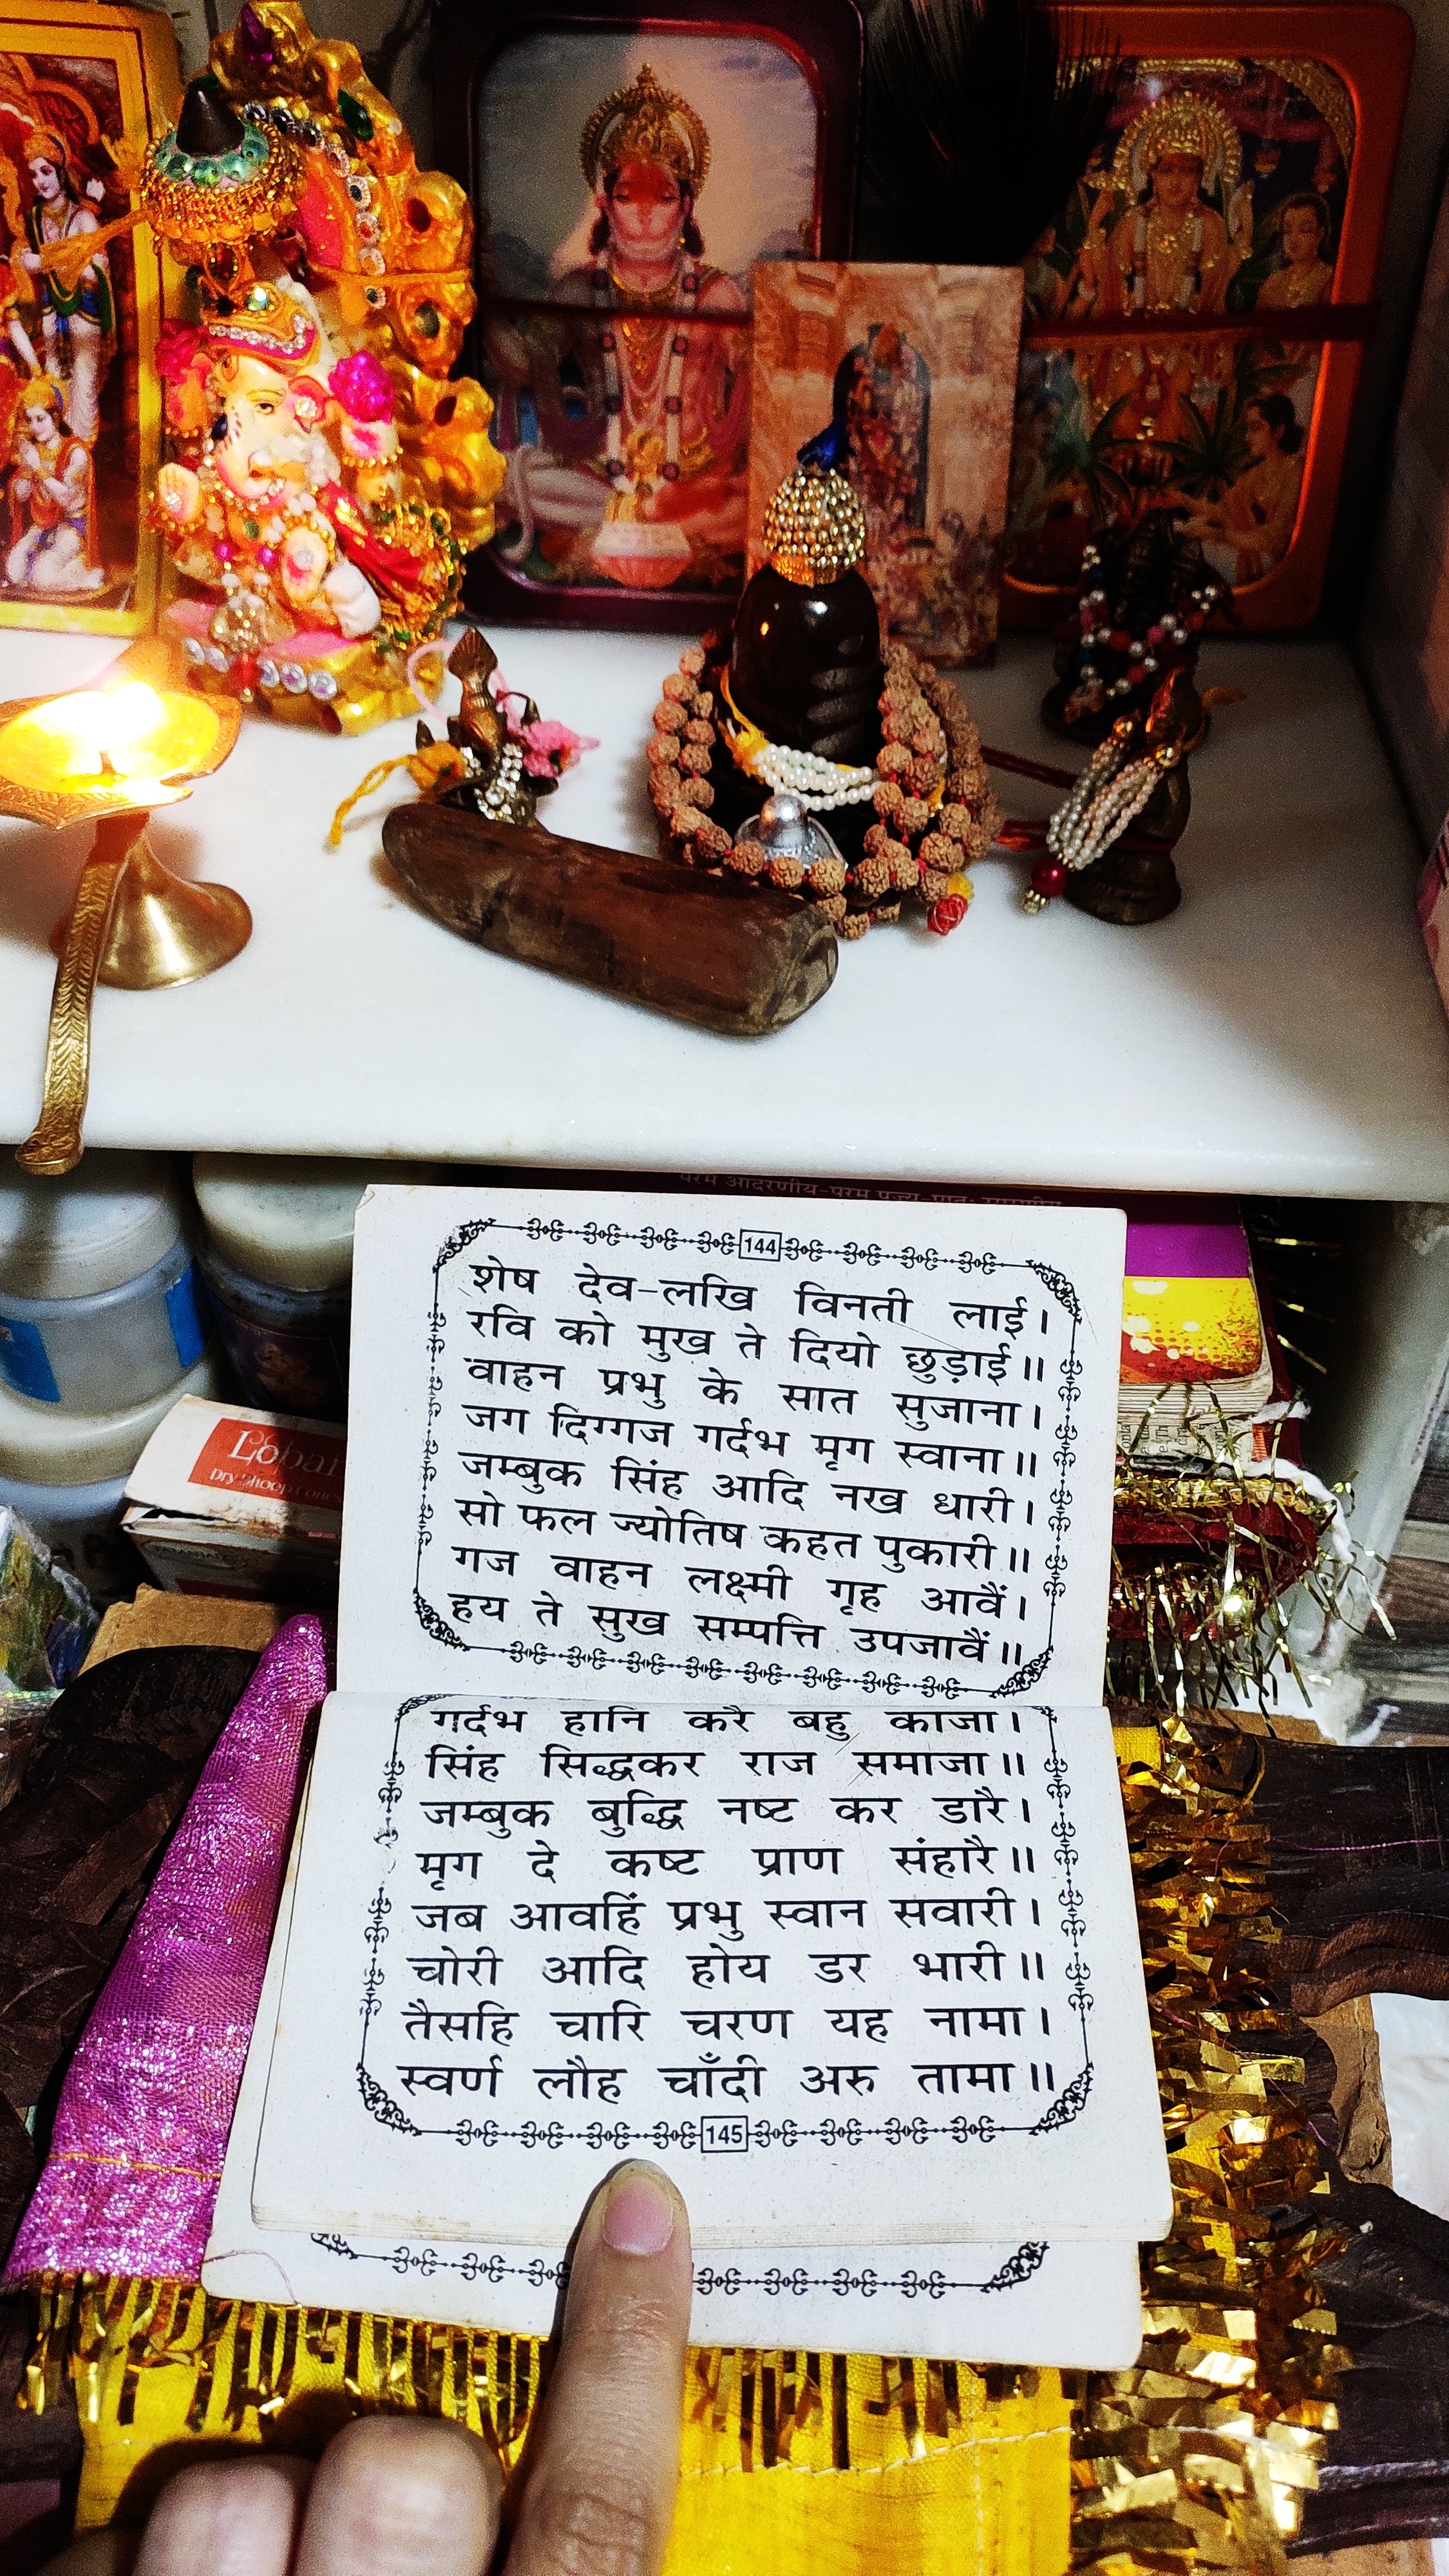 परम आदरणीय-परम पूज्य-प्रातः
Loban
Dry Dhoop Cones
144
शेष देव-लखि विनती लाई।
रवि को मुख ते दियो छुड़ाई॥
वाहन प्रभु के सात सुजाना।
जग दिग्गज गर्दभ मृग स्वाना॥
जम्बुक सिंह आदि नख धारी।
सो फल ज्योतिष कहत पुकारी॥
गज वाहन लक्ष्मी गृह आवैं।
हय ते सुख सम्पत्ति उपजावैं॥
गर्दभ हानि करै बहु काजा।
सिंह सिद्धकर राज समाजा॥
जम्बुक बुद्धि नष्ट कर डारै।
मृग दे कष्ट प्राण संहारै॥
जब आवहिं प्रभु स्वान सवारी।
चोरी आदि होय डर भारी॥
तैसहि चारि चरण यह नामा।
स्वर्ण लौह चाँदी अरु तामा॥
145